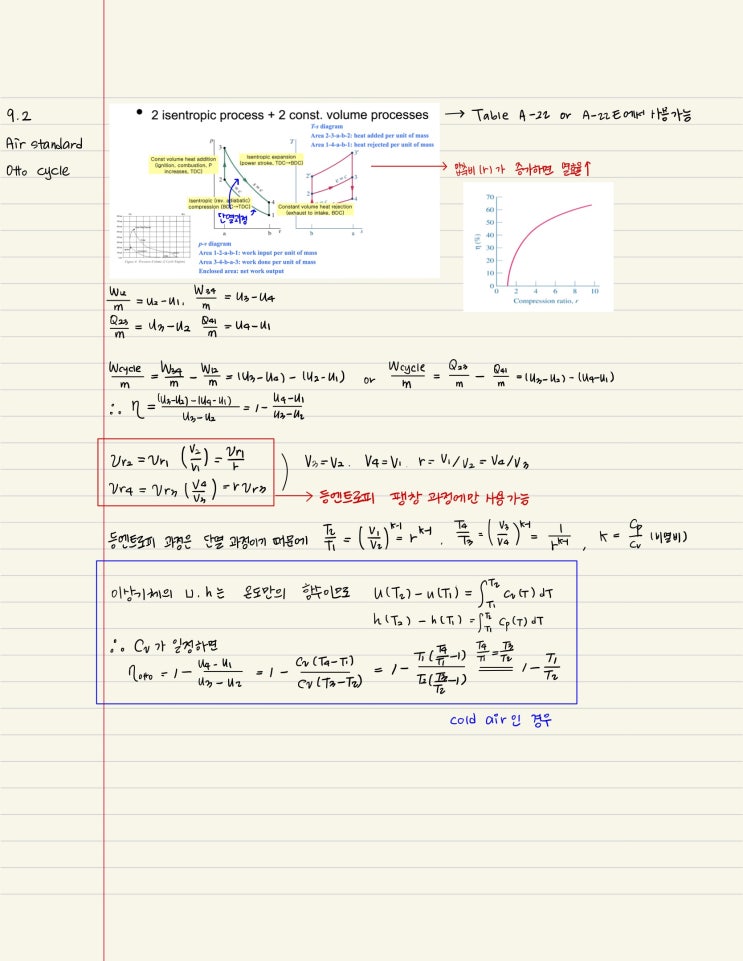 9.2
Air standard
Otto cycle
• 2 isentropic process + 2 const. volume processes
→ Table A-22 or A-22E에서 사용가능
T-s diagram
Area 2-3-a-b-2: heat added per unit of mass
Area 1-4-a-b-1: heat rejected per unit of mass
→ 압축비(r)가 증가하면 열효율↑
Const volume heat addition
(ignition, combustion, P
increases, TDC)
Isentropic expansion
(power stroke, TDC→BDC)
Isentropic (rev. adiabatic)
compression (BDC→TDC)
단열과정
Constant volume heat rejection
(exhaust to intake, BDC)
p-v diagram
Area 1-2-a-b-1: work input per unit of mass
Area 3-4-b-a-3: work done per unit of mass
Enclosed area: net work output
η (%)
70
60
50
40
30
20
10
0
0 2 4 6 8 10
Compression ratio, r
W12/m = u2-u1, W34/m = u3-u4
Q23/m = u3-u2 Q41/m = u4-u1
Wcycle/m = W34/m - W12/m = (u3-u4) - (u2-u1) or Wcycle/m = Q23/m - Q41/m = (u3-u2) - (u4-u1)
∴ η = (u3-u2)-(u4-u1)/u3-u2 = 1 - u4-u1/u3-u2
Vr2 = Vr1 (V2/V1) = Vr1/r
V3=V2. V4=V1. r = V1/V2 = V4/V3
Vr4 = Vr3 (V4/V3) = r Vr3
→ 등엔트로피 팽창 과정에만 사용가능
등엔트로피 과정은 단열 과정이기 때문에 T2/T1 = (V1/V2)^k-1 = r^k-1. T4/T3 = (V3/V4)^k-1 = 1/r^k-1, K = Cp/Cv (비열비)
이상기체의 u.h는 온도만의 함수이므로 u(T2)-u(T1) = ∫T1T2 Cv(T) dT
h(T2)-h(T1) = ∫T1T2 Cp(T) dT
∴ Cv가 일정하면
ηotto = 1 - u4-u1/u3-u2 = 1 - Cv(T4-T1)/Cv(T3-T2) = 1 - T1(T4/T1-1)/T2(T3/T2-1) T4/T1=T3/T2 = 1 - T1/T2
cold air인 경우